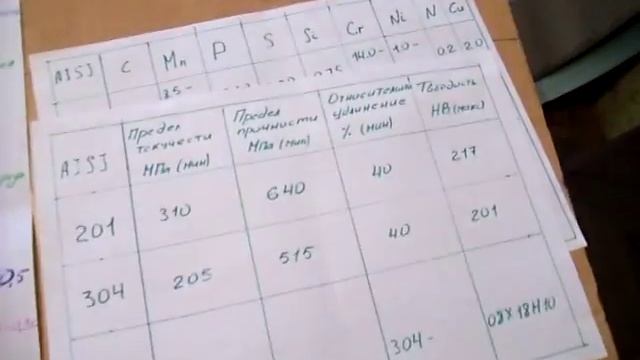 AISI C Mn P S Si Cr Ni N Cu
14.0- 1.0- 0.2 2.0
AISI Предел текучести МПа (мин) Предел прочности МПа (мин) Относительн удлинение % (мин) Твёрдость HB (макс)
201 310 640 40 217
304 205 515 40 201
304- 08Х18Н10
0,5